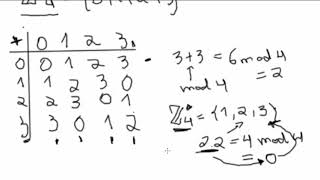 + 0 1 2 3
0 0 1 2 3
1 1 2 3 0
2 2 3 0 1
3 3 0 1 2
3+3 = 6 mod 4
= 2
mod 4
ℤ₄ = {1,2,3}
2.2 = 4 mod 4
= 0